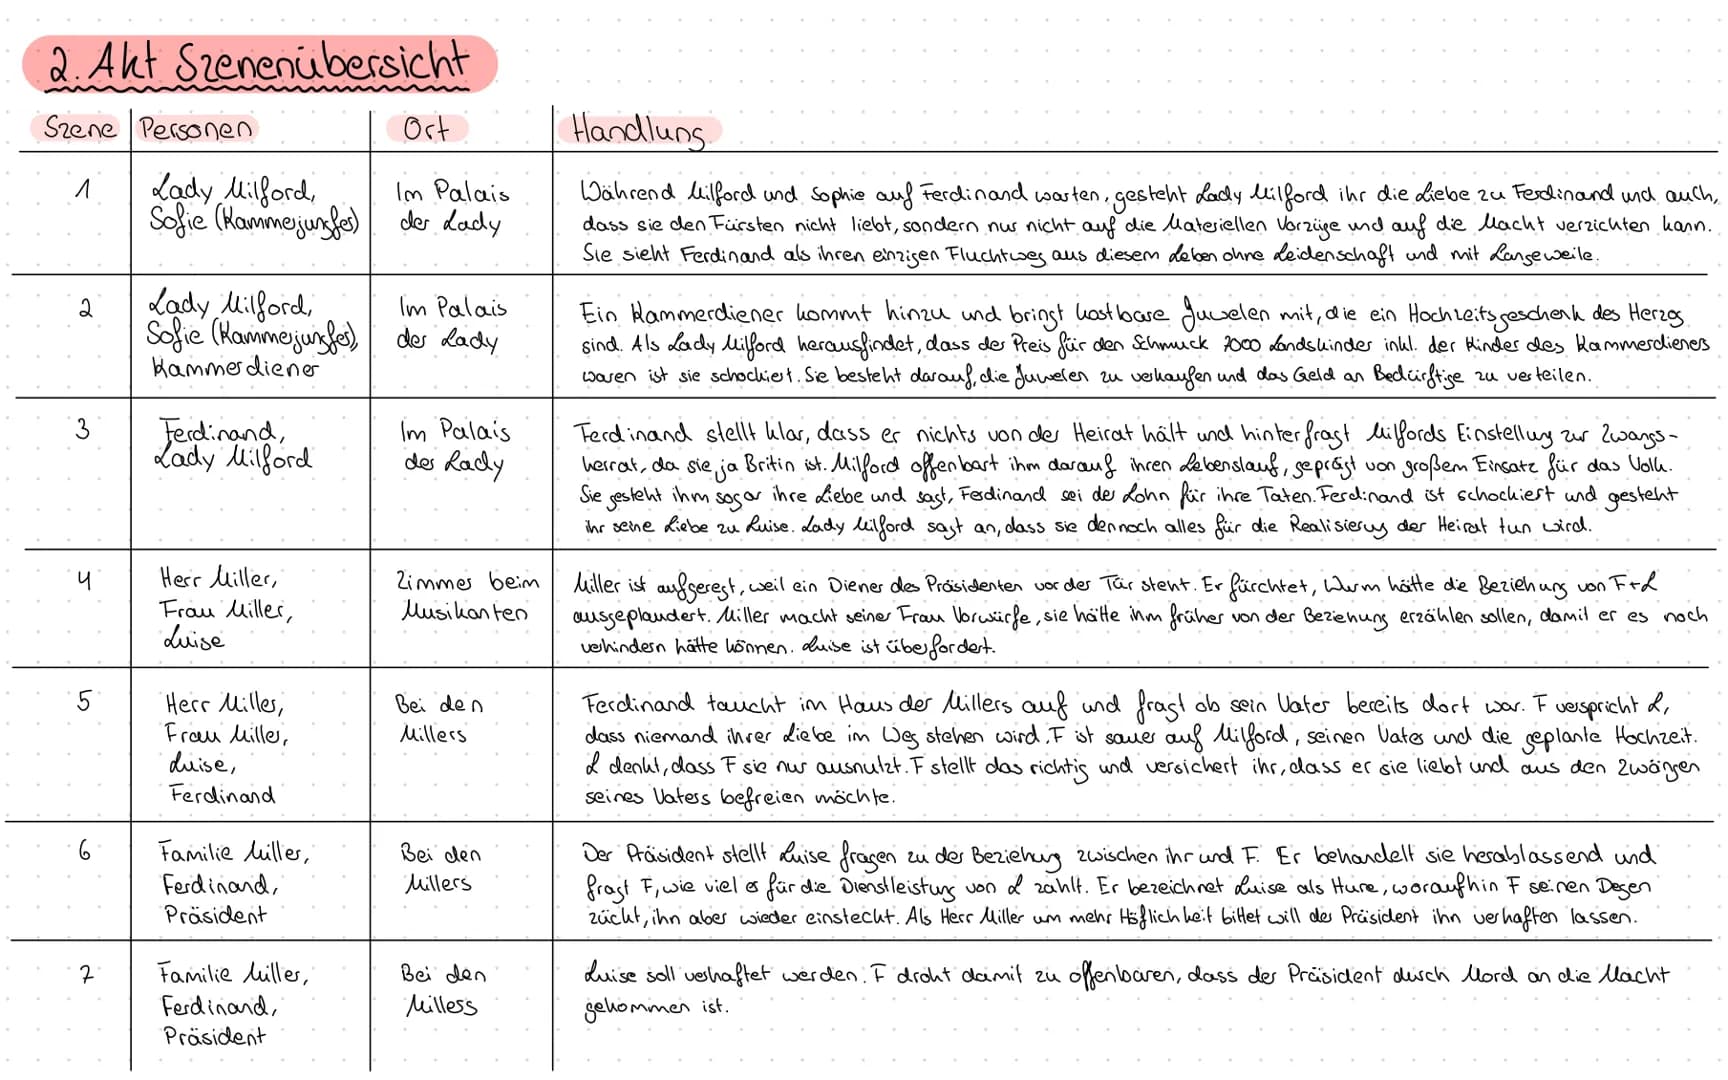 2. Akt Szenenübersicht
Szene Personen Ort Handlung
1
Lady Milford,
Sofie (Kammerjungfer)
Im Palais
der Lady
Während Milford und Sophie auf Ferdinand warten, gesteht Lady Milford ihr die Liebe zu Ferdinand und auch,
dass sie den Fürsten nicht liebt, sondern nur nicht auf die Materiellen Vorzüge und auf die Macht verzichten kann.
Sie sieht Ferdinand als ihren einzigen Fluchtweg aus diesem Leben ohne Leidenschaft und mit Langeweile.
2
Lady Milford,
Sofie (Kammerjungfer),
Kammerdiener
Im Palais
der Lady
Ein Kammerdiener kommt hinzu und bringt kostbare Juwelen mit, die ein Hochzeitsgeschenk des Herzog
sind. Als Lady Milford herausfindet, dass der Preis für den Schmuck 7000 Landskinder inkl. der Kinder des Kammerdieners
waren ist sie schockiert. Sie besteht darauf, die Juwelen zu verkaufen und das Geld an Bedürftige zu verteilen.
3
Ferdinand,
Lady Milford
Im Palais
der Lady
Ferdinand stellt klar, dass er nichts von der Heirat hält und hinterfragt Milfords Einstellung zur Zwangs-
heirat, da sie ja Britin ist. Milford offenbart ihm darauf ihren Lebenslauf, geprägt von großem Einsatz für das Volk.
Sie gesteht ihm sogar ihre Liebe und sagt, Ferdinand sei der Lohn für ihre Taten. Ferdinand ist schockiert und gesteht
ihr seine Liebe zu Luise. Lady Milford sagt an, dass sie dennoch alles für die Realisierung der Heirat tun wird.
4
Herr Miller,
Frau Miller,
Luise
Zimmer beim
Musikanten
Miller ist aufgeregt, weil ein Diener des Präsidenten vor der Tür steht. Er fürchtet, Wurm hätte die Beziehung von F+L
ausgeplaudert. Miller macht seiner Frau Vorwürfe, sie hätte ihm früher von der Beziehung erzählen sollen, damit er es noch
verhindern hätte können. Luise ist überfordert.
5
Herr Miller,
Frau Miller,
Luise,
Ferdinand
Bei den
Millers
Ferdinand taucht im Haus der Millers auf und fragt ob sein Vater bereits dort war. F verspricht L,
dass niemand ihrer Liebe im Weg stehen wird. F ist sauer auf Milford, seinen Vater und die geplante Hochzeit.
L denkt, dass F sie nur ausnutzt. F stellt das richtig und versichert ihr, dass er sie liebt und aus den Zwängen
seines Vaters befreien möchte.
6
Familie Miller,
Ferdinand,
Präsident
Bei den
Millers
Der Präsident stellt Luise fragen zu der Beziehung zwischen ihr und F. Er behandelt sie herablassend und
fragt F, wie viel er für die Dienstleistung von L zahlt. Er bezeichnet Luise als Hure, woraufhin F seinen Degen
zückt, ihn aber wieder einsteckt. Als Herr Miller um mehr Höflichkeit bittet will der Präsident ihn verhaften lassen.
7
Familie Miller,
Ferdinand,
Präsident
Bei den
Millers
Luise soll verhaftet werden. F droht damit zu offenbaren, dass der Präsident durch Mord an die Macht
gekommen ist.